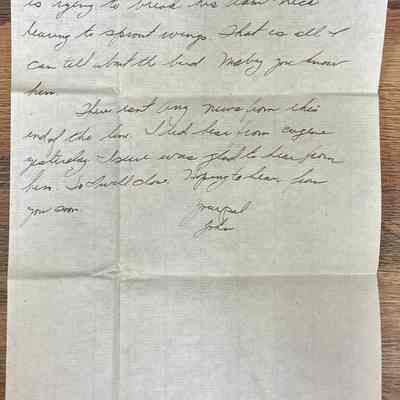 is trying to break his damn neck
learing to sprout wings. That is all I
can tell about the bird. Maby you know
him.
There isn't any news from this
end of the line. I did hear from eugene
yesterday - I sure was glad to hear from
him. So I will close. Hoping to hear from
you soon.
your pal
John